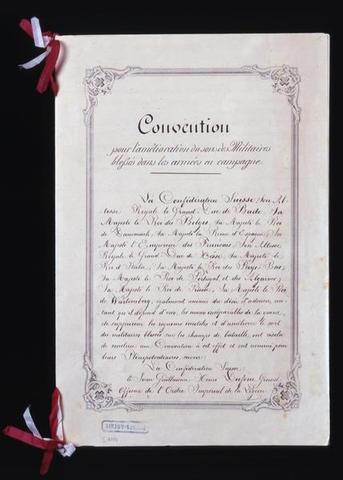 Convention
pour l'amélioration du sort des Militaires
blessés dans les armées en campagne
La Confédération Suisse, Son Al-
tesse Royale le Grand-Duc de Bade, Sa
Majesté le Roi des Belges, Sa Majesté le Roi
de Danemark, Sa Majesté la Reine d'Espagne, Sa
Majesté l'Empereur des Français, Son Altesse
Royale le Grand Duc de Hesse, Sa Majesté le
Roi d'Italie, Sa Majesté le Roi des Pays-Bas,
Sa Majesté le Roi de Portugal et des Algarves,
Sa Majesté le Roi de Prusse, Sa Majesté le Roi
de Würtemberg, également animés du désir d'adoucir, au-
tant qu'il dépend d'eux, les maux inséparables de la guerre,
de supprimer les rigueurs inutiles et d'améliorer le sort
des militaires blessés sur les champs de bataille, ont résolu
de conclure une Convention à cet effet et ont nommé pour
leurs Plénipotentiaires, savoir:
La Confédération Suisse
le Sieur Guillaume Henri Dufour, Grand
Officier de l'Ordre Impérial de la Légion